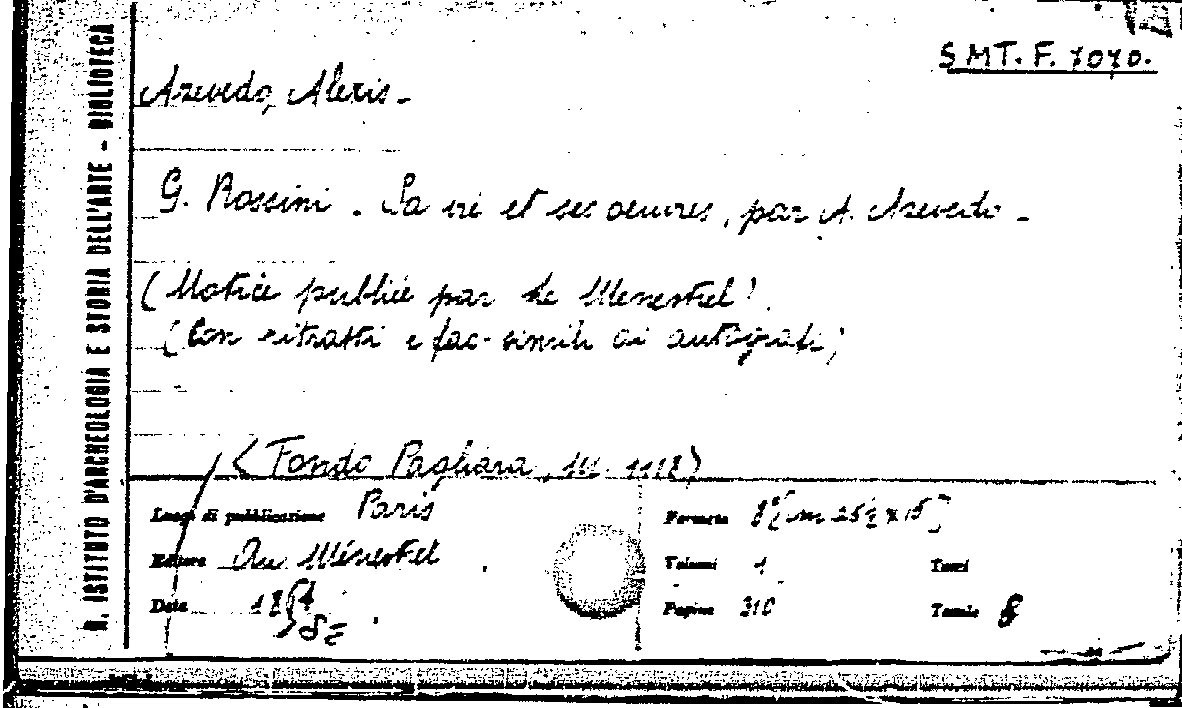 R. ISTITUTO D'ARCHEOLOGIA E STORIA DELL'ARTE - BIBLIOTECA
S MT. F. 7070.
Azevedo, Alexis -
G. Rossini - Sa vie et ses oeuvres, par A. Azevedo -
(Notice publiée par Le Menestrel)
(Con ritratti e fac-simili di autografi)
(Fondo Pagliara, 1118)
Luogo di pubblicazione Paris
Formato 8º
Editore Au Ménestrel
Volumi 1
Tomi
Data
Pagine 310
Tavole 8